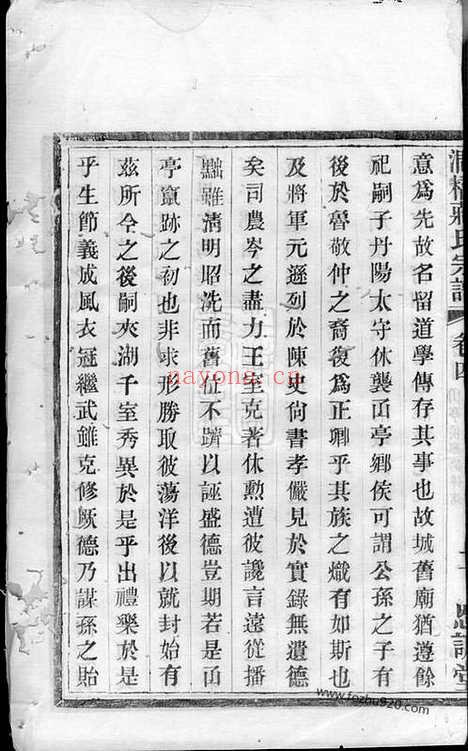 洞橋蔣氏宗譜 卷四
意爲先故名留道學傳存其事也故城舊廟猶遵餘
祀嗣子丹陽太守休襲函亭鄉侯可謂公孫之子有
後於魯敬仲之裔復爲正卿乎其族之熾有如斯也
及將軍元遜列於陳史尙書孝儼見於實錄無遺德
矣司農岑之盡力王室克著休勲遭彼讒言遠從播
黜雖淸明昭洗而舊征不躋以誣盛德豈期若是函
亭竄跡之初也非求形勝取彼蕩洋後以就封始有
茲所令之後嗣夾湖千室秀異於是乎出禮樂於是
乎生節義成風衣冠繼武雖克修厥德乃謀孫之貽
nayona.cn
www.fozhu920.com